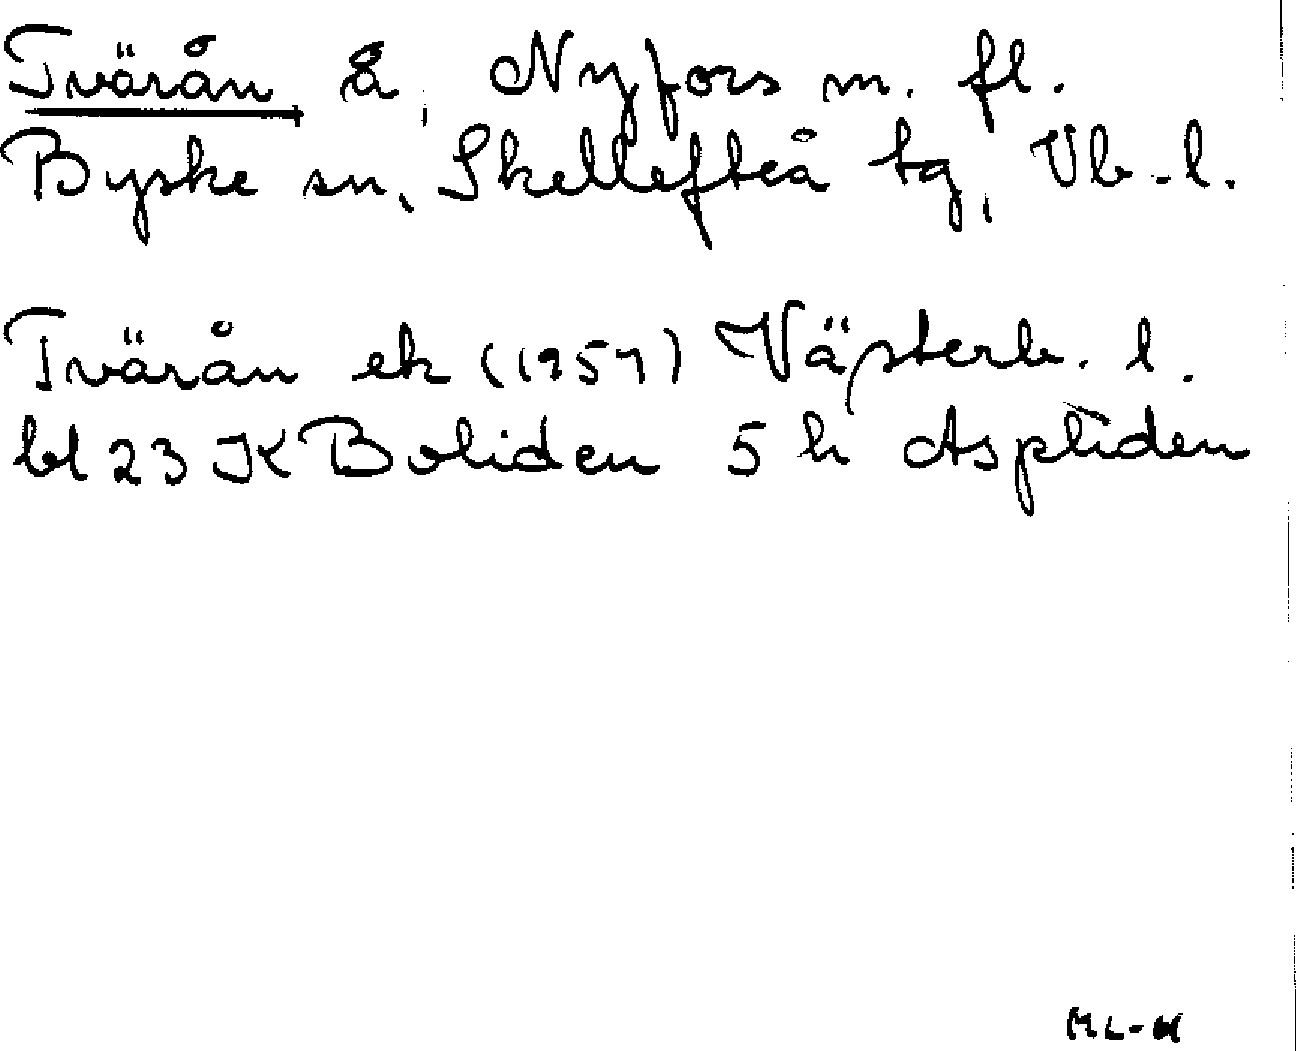 Tvärån å, Nyfors m. fl.
Byske sn, Skellefteå tg, Vb.l.
Tvärån ek (1957) Västerb. l.
bl 23 K Boliden 5 h Aspliden
ML-H